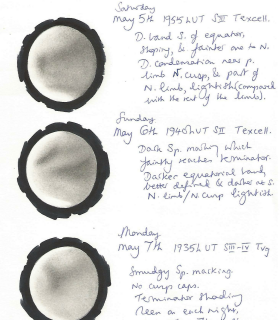 Saturday
May 5th 1955h UT SIII Texcell.
D. band S. of equator,
sloping, & fainter one to N.
D. condensation near p.
limb N. cusp, & part of
N. limb, lightish (compared
with the rest of the limb).
Sunday
May 6th 1940h UT SII Texcell.
Dark Sp. marking which
faintly reaches terminator.
Darker equatorial band,
better defined & darker at S.
N. limb/N cusp lightish
Monday
May 7th 1935h UT SIII-IV Tvg
Smudgy Sp. marking.
No cusp caps.
Terminator shading
seen on each night,